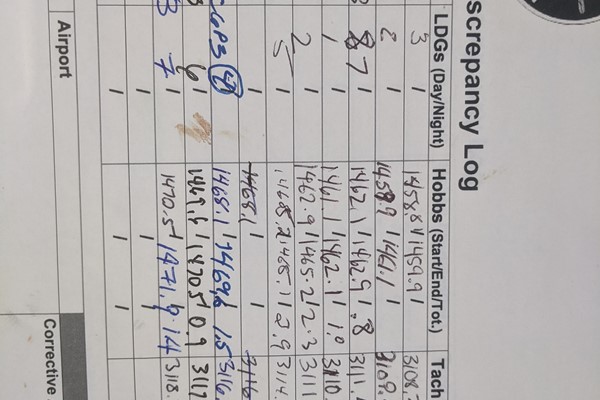 screpancy Log
LDGs (Day/Night) Hobbs (Start/End/Tot.) Tach
3 / 1458.8 / 1459.9 / 3108.
2 / 1458.9 / 1461.1 / 3109.
7 / 1462.1 / 1462.9 / .8 3111.
1 / 1461.1 / 1462.1 / 1.0 3110.
2 / 1462.9 / 1465.2 / 2.3 3111
5 / 3114.
/ 1468.1 / / 3116
/ 1468.1 / 1.5 3116.
6 / 1469.6 / 1470.5 0.9 3117
7 / 1470.5 / 1471.9 / 1.4 3118.
/ / /
/ / /
Airport Corrective